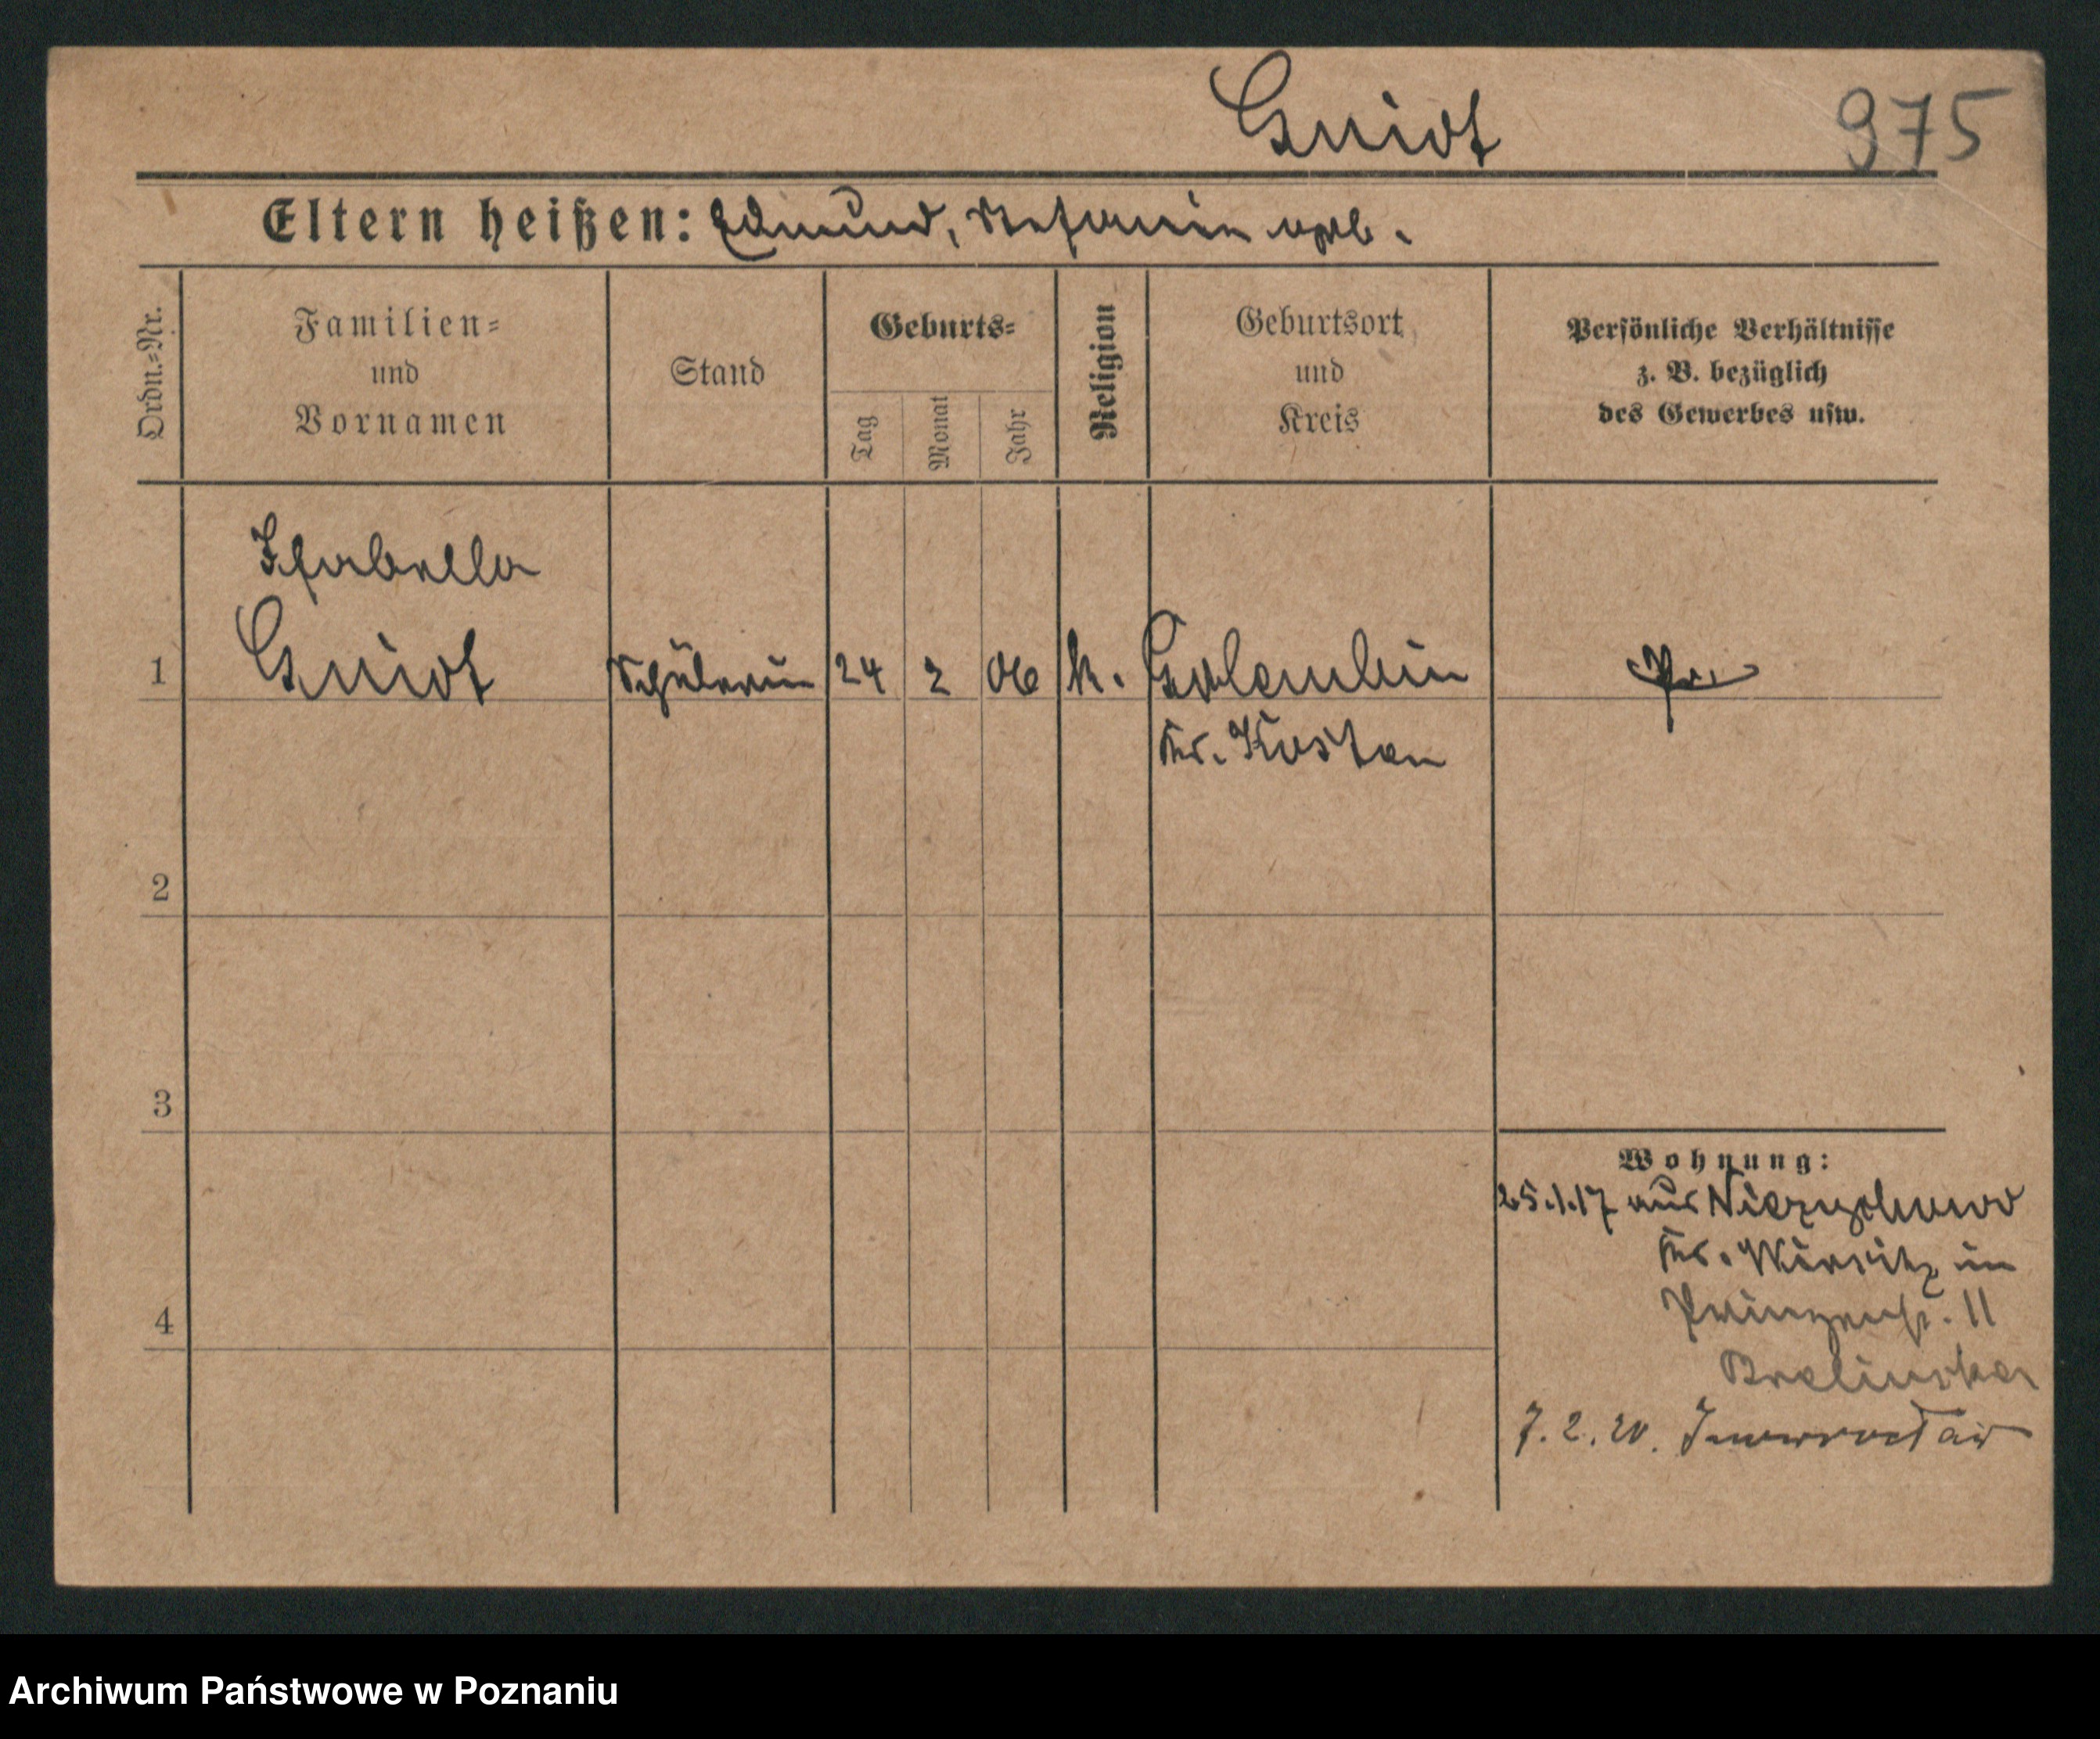 Gniot
975
Eltern heißen: Edmund, Stefania verh.
Ordn.=Nr.
Familien=
und
Vornamen
Stand
Geburts=
Tag
Monat
Jahr
Religion
Geburtsort
und
Kreis
Persönliche Verhältnisse
z. B. bezüglich
des Gewerbes usw.
Isabella
1 Gniot Schülerin 24 2 06 k. Golembin Pr.
Kr. Kosten
2
3
4
Wohnung:
25.1.17 aus Niezychowo
Kr. Wirsitz in
Prinzenstr. 11
7.2.20. Inowroclaw
Archiwum Państwowe w Poznaniu